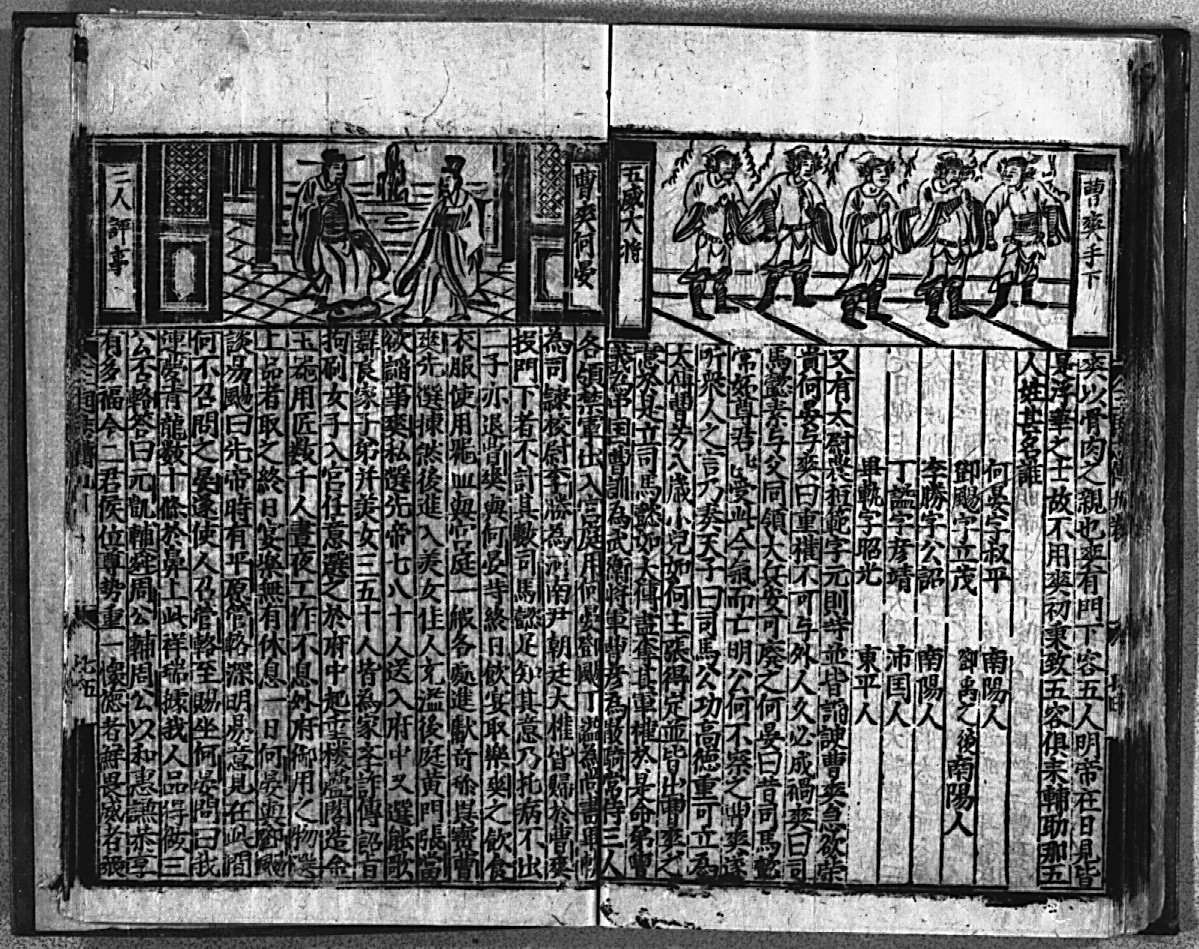 曹爽手下
五威大將
爽以骨肉之親也爽有門下客五人明帝在日見皆
是浮華之士故不用爽初秉政五客俱來輔助那五
人姓甚名誰
何晏字叔平 南陽人
鄧颺字立茂 鄧禹之後南陽人
李勝字公詔 南陽人
丁謐字彦靖 沛国人
畢軌字昭光 東平人
又有太尉農桓範字元則等並皆謟諛曹爽忽欲崇
貴何晏与爽曰重權不可与外人久必成禍爽曰司
馬懿素与父同領大兵安可廢之何晏曰昔司馬懿
常妬尊君受此今氣而亡明公何不察之曹爽遂
听衆人之言乃奏天子曰司馬公功高德重可立為
太傅曹芳八歲小兒如何主張得定並皆出曹爽之
意於是立司馬懿如太傅盡奪其軍權於是命弟曹
羲為中国曹訓為武衛將軍曹彦為散騎常侍三人
曹爽何晏
三人評事
各領禁軍出入宫庭用何晏鄧颺丁謐為尚書畢軌
為司隸校尉李勝為河南尹朝廷大權皆歸於曹爽
投門下者不計其數司馬懿足知其意乃托病不出
二子亦退曹爽與何晏等終日飲宴取樂爽之飲食
衣服使用器皿與宫庭一般各處進獻奇珍異寳曹
爽先選揀然後進入美女佳人充溢後庭黄門張當
欲謟事爽私選先帝七八十人送入府中又選能歌
舞良家子弟并美女三五十人皆為家筌詐傳詔百
拘刷女子入官任意選之於府中起重樓盤閣造金
玉器用匠数千人晝夜工作不息外府御用之物選
上品者取之終日宴樂無有休息一日何晏與鄧颺
談易颺曰先帝時有平原管輅深明易意見在此間
何不召問之晏遂使人召管輅至賜坐何晏問曰我
連夢青龍数十條於鼻上此祥瑞據我人品得做三
公否輅答曰元凱輔舜周公輔周公以和惠謙恭享
有多福今二君侯位尊勢重一懷德者無畏威者衆